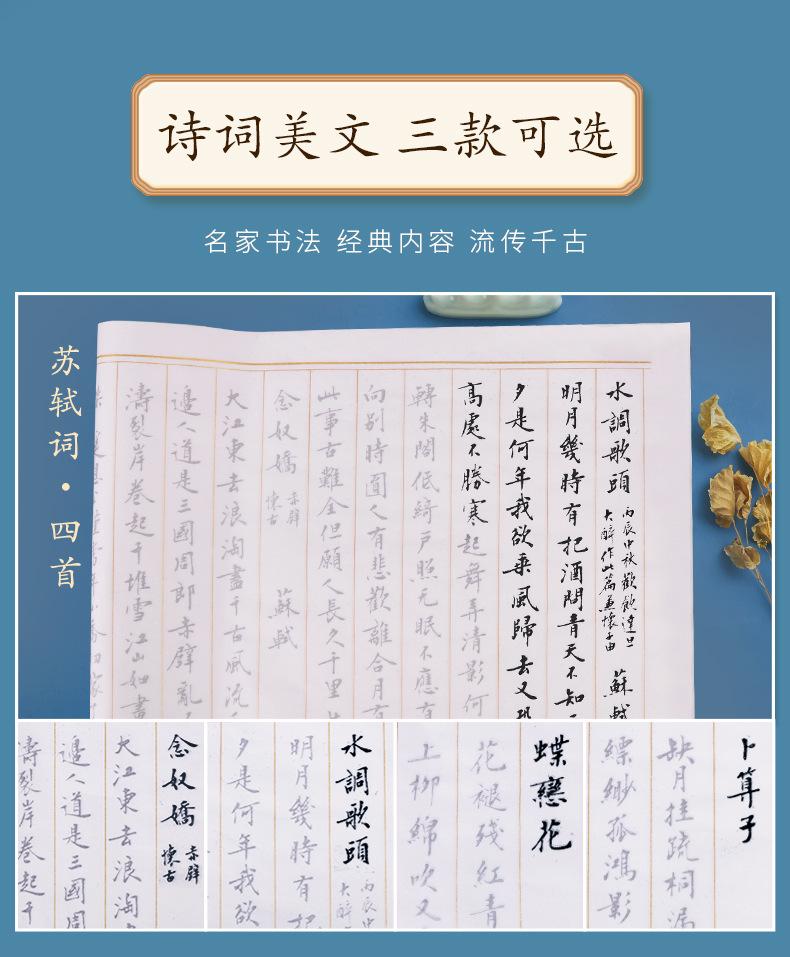 诗词美文 三款可选
名家书法 经典内容 流传千古
苏轼词·四首
水調歌頭
丙辰中秋歡飲達旦
大醉作此篇兼懷子由
蘇軾
明月幾時有把酒問青天不知
夕是何年我欲乗風歸去又恐
高處不勝寒起舞弄清影何
轉朱閣低綺戶照无眠不應有
向別時圓人有悲歡離合月有
此事古難全但願人長久千里
念奴嬌
赤壁
懷古
蘇軾
大江東去浪淘盡千古風流
邊人道是三國周郎赤壁亂
濤裂岸卷起千堆雪江山如畫
念奴嬌
赤壁
懷古
大江東去浪淘
邊人道是三國周
濤裂岸卷起千
水調歌頭
丙辰中
大醉
明月幾時有把
夕是何年我欲
蝶戀花
花褪殘紅青
上柳綿吹又
卜算子
缺月挂疏桐漏
縹緲孤鴻影